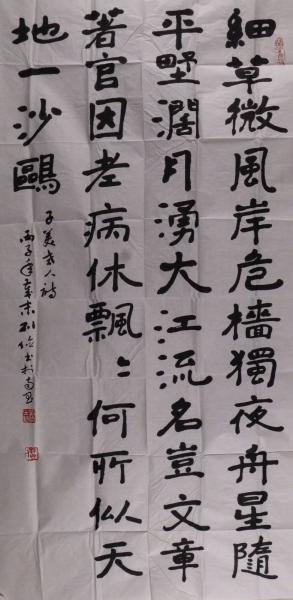 細草微風岸危檣獨夜舟星隨
平野濶月湧大江流名豈文章
著官因老病休飄〻何所似天
地一沙鷗
子美 人詩
丙子年歲末